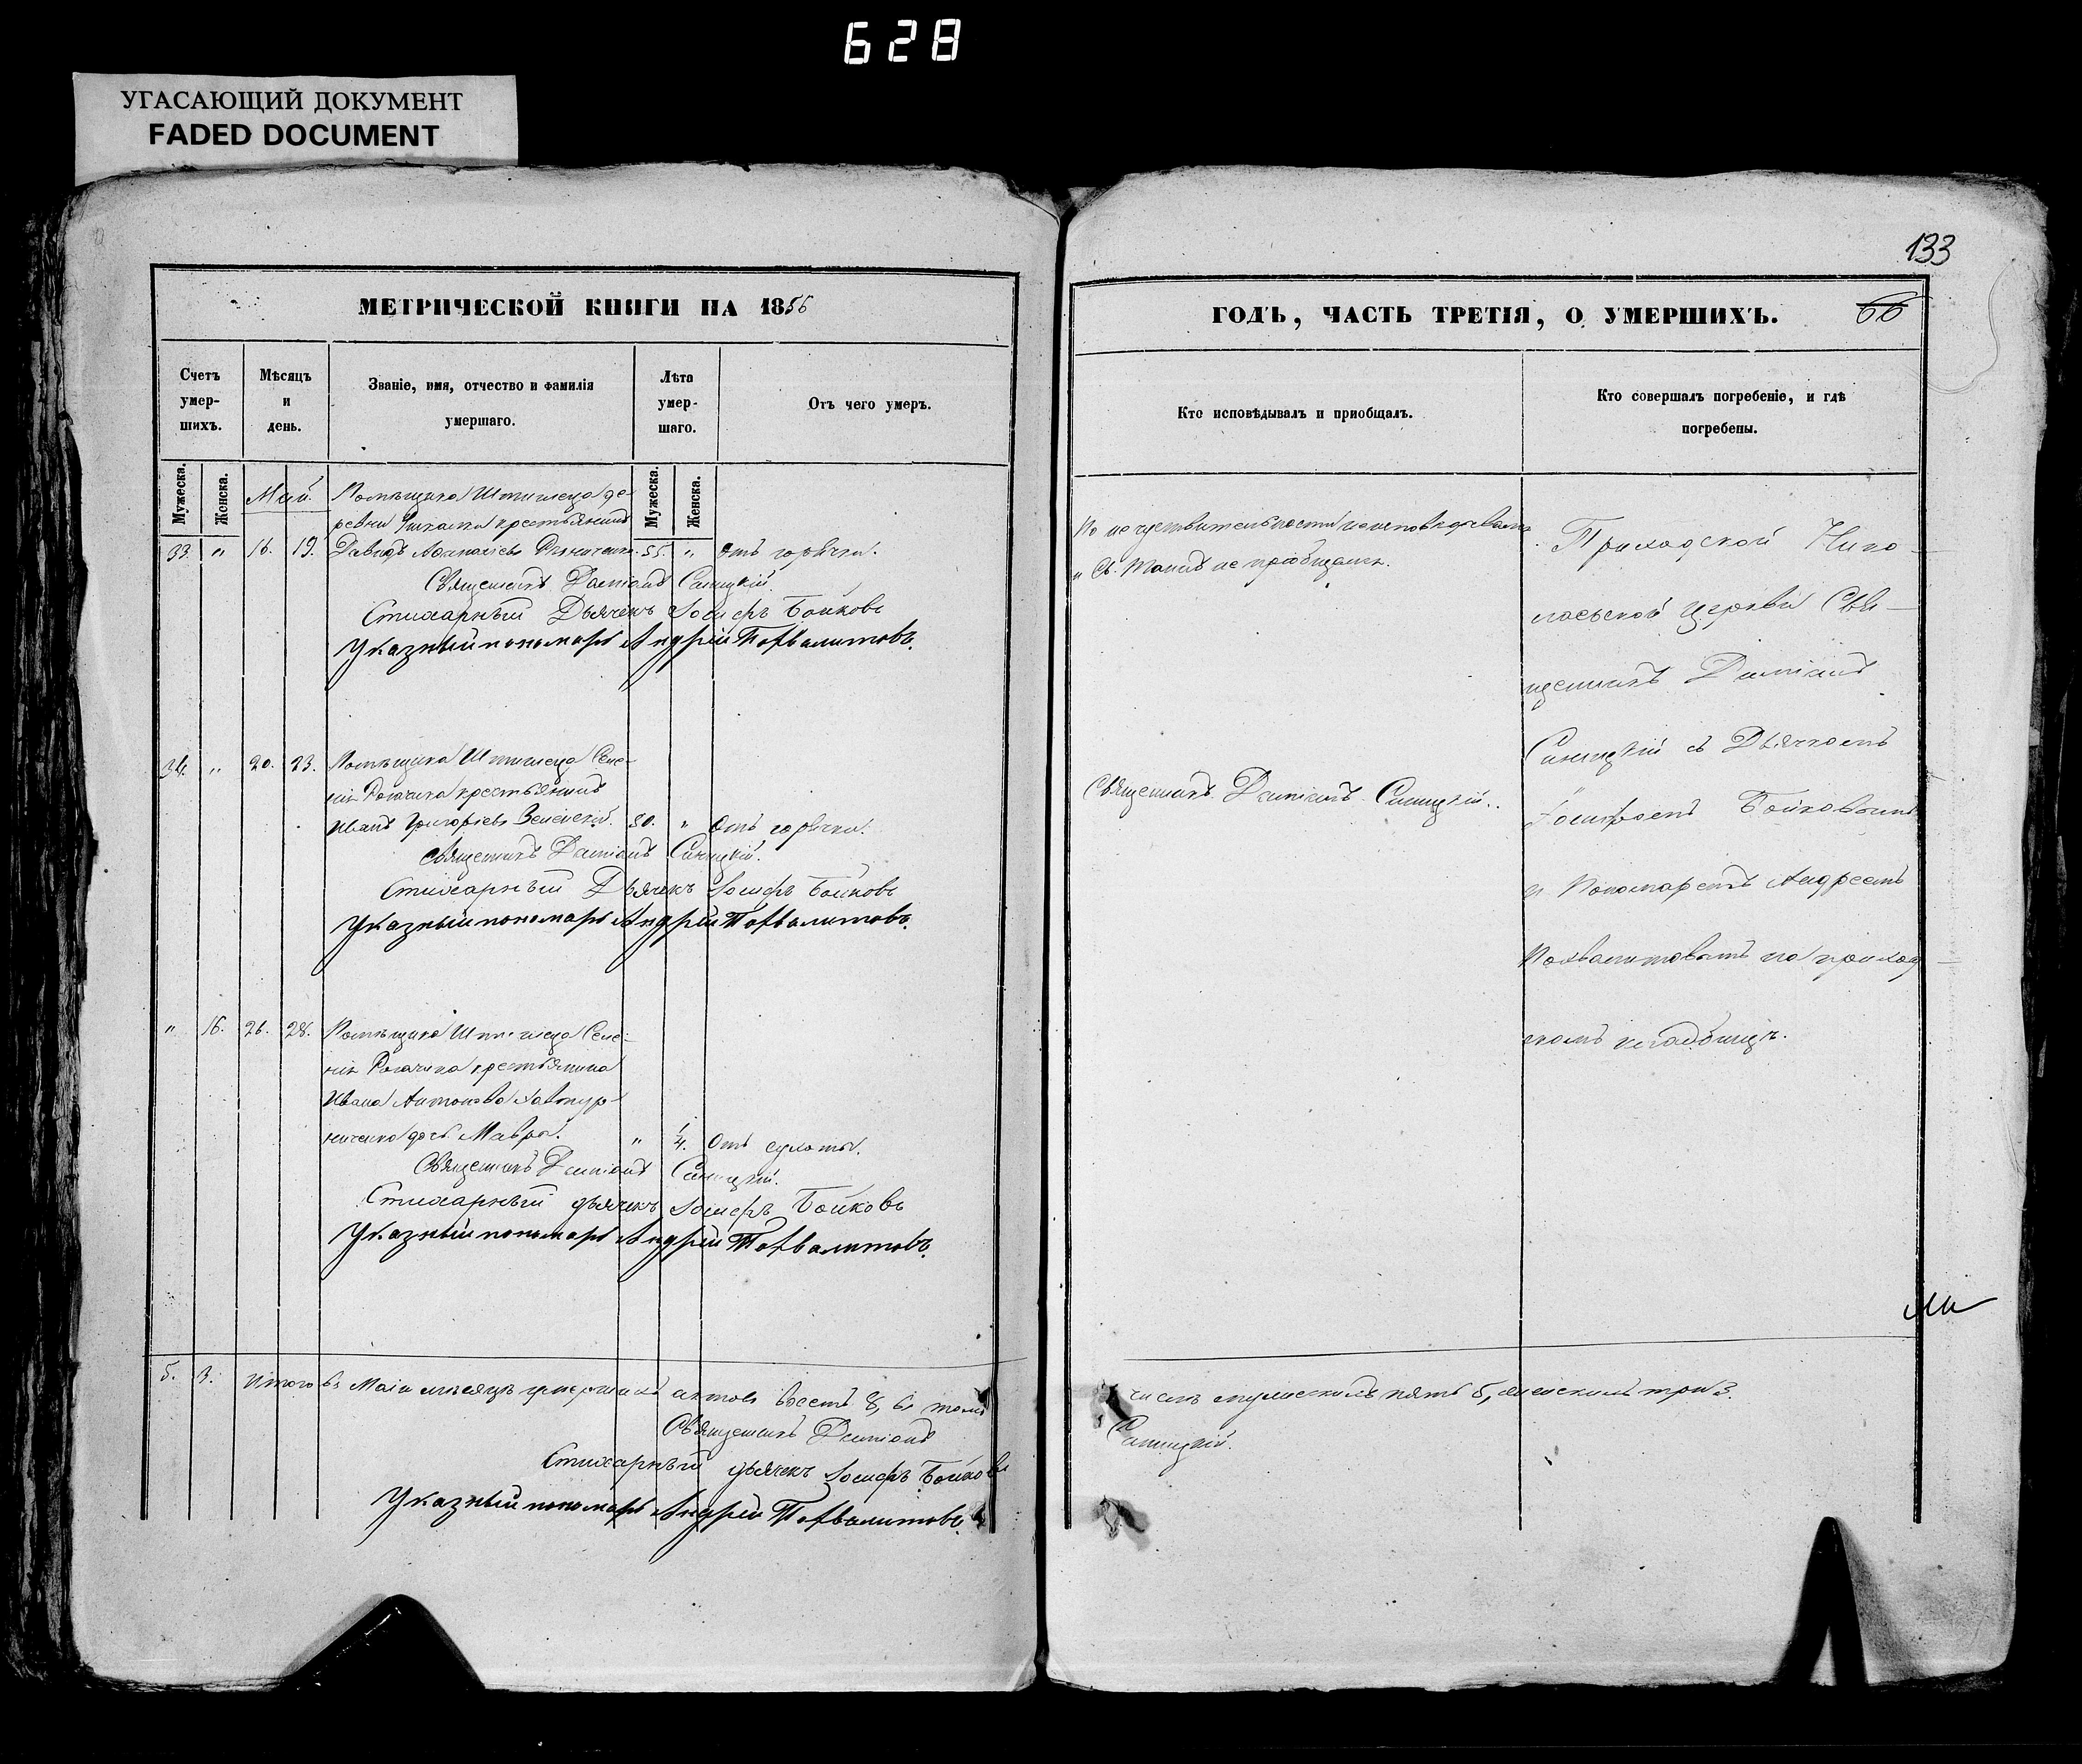 628
УГАСАЮЩИЙ ДОКУМЕНТ
FADED DOCUMENT
МЕТРИЧЕСКОЙ КНИГИ НА 1856
Счетъ умер- шихъ.
Мѣсяцъ и день.
Званіе, имя, отчество и фамилія умершаго.
Лѣта умер- шаго.
Отъ чего умеръ.
Мужеска.
Женска.
Мужеска.
Женска.
Май. Помѣщика Штиглеца де-
ревни крестьянинъ
33. " 16. 19. Давидъ 55. " Отъ горячки.
Священникъ Даміанъ Синицкій.
Стихарный Дьячекъ Іосифъ Бойковъ
Указный пономарь Андрей Похвалитовъ.
34. " 20. 23. Помѣщика Штиглеца Селе-
нія Рогачика крестьянинъ
Иванъ Григорьевъ Зеленскій. 80. " Отъ горячки.
Священникъ Даміанъ Синицкій.
Стихарный Дьячекъ Іосифъ Бойковъ
Указный пономарь Андрей Похвалитовъ.
" 16. 26. 28. Помѣщика Штиглеца Селе-
нія Рогачика крестьянина
Ивана Антонова
дочь Мавра. " 1/4. Отъ сухоты.
Священникъ Даміанъ Синицкій.
Стихарный дьячекъ Іосифъ Бойковъ
Указный пономарь Андрей Похвалитовъ.
5. 3. Итого въ Маіи мѣсяцѣ умершихъ актовъ всѣхъ 8, въ томъ
Священникъ Даміанъ
Стихарный дьячекъ Іосифъ Бойковъ
Указный пономарь Андрей Похвалитовъ.
133
ГОДЪ, ЧАСТЬ ТРЕТІЯ, О УМЕРШИХЪ.
66
Кто исповѣдывалъ и приобщалъ.
Кто совершалъ погребеніе, и гдѣ погребены.
По нечувствительности неисповѣдыванъ
и Св. Таинъ не пріобщался.
Священникъ Даміанъ Синицкій.
Приходской Нико-
лаевской церкви Свя-
щенникъ Даміанъ
Синицкій съ Дьячкомъ
Іосифомъ Бойковымъ
и Пономаремъ Андреемъ
Похвалитовымъ на приход-
скомъ кладбищѣ.
числѣ мужескихъ пять 5, женскихъ три 3.
Синицкій.